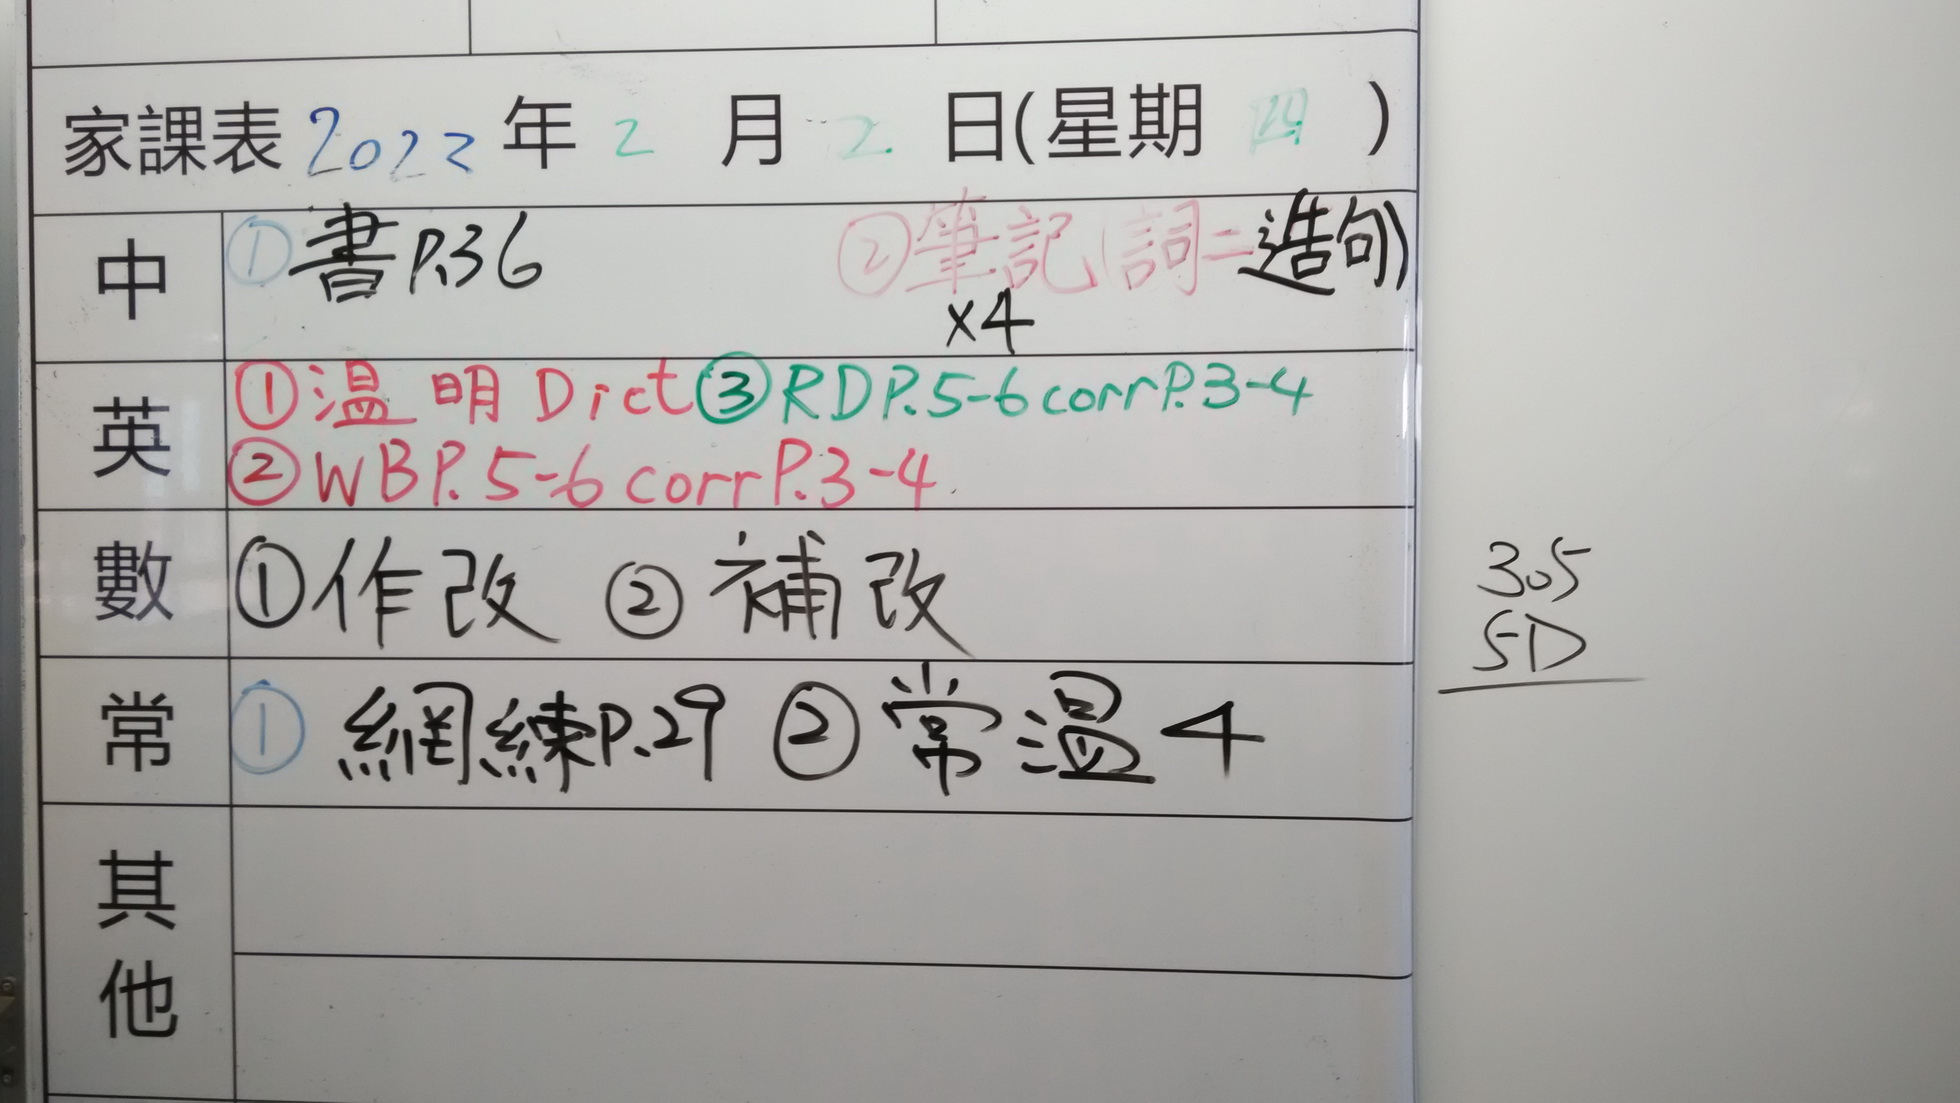 家課表 2022 年 2 月 2 日(星期 四 )
中 ①書P.36 ②筆記(詞二造句)
x4
英 ①温 明 Dict ③RDP.5-6corrP.3-4
②WBP.5-6 corrP.3-4
數 ①作改 ②補改
常 ① 網練P.29 ②常温4
其他
305
5D